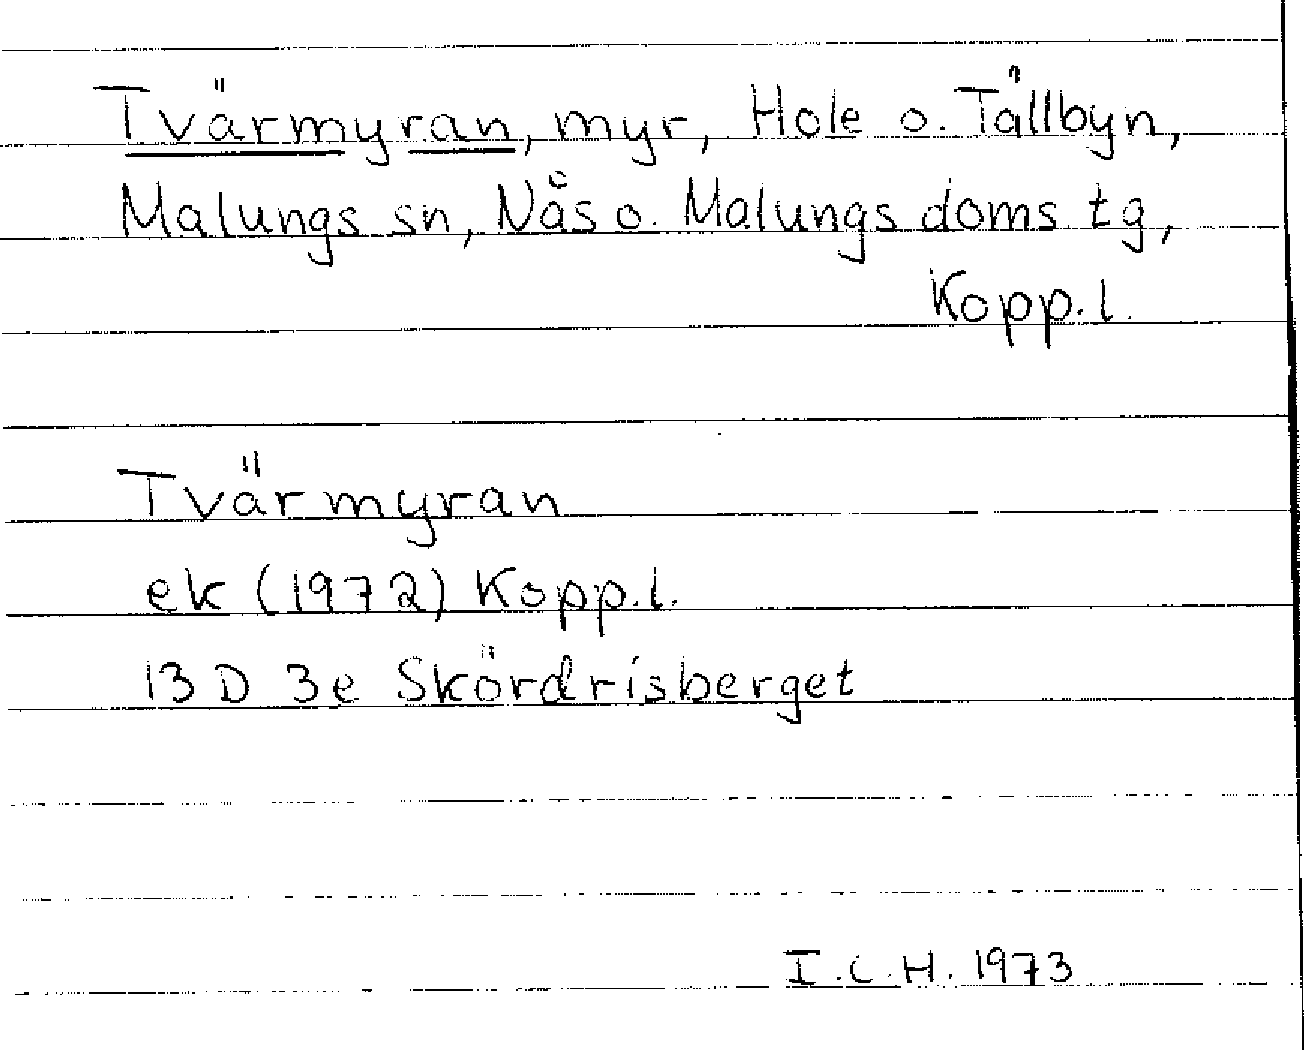 Tvärmyran, myr, Hole o. Tällbyn,
Malungs sn, Nås o. Malungs doms tg,
Kopp. l.
Tvärmyran
ek (1972) Kopp. l.
13 D 3e Skördrisberget
I.C.H. 1973